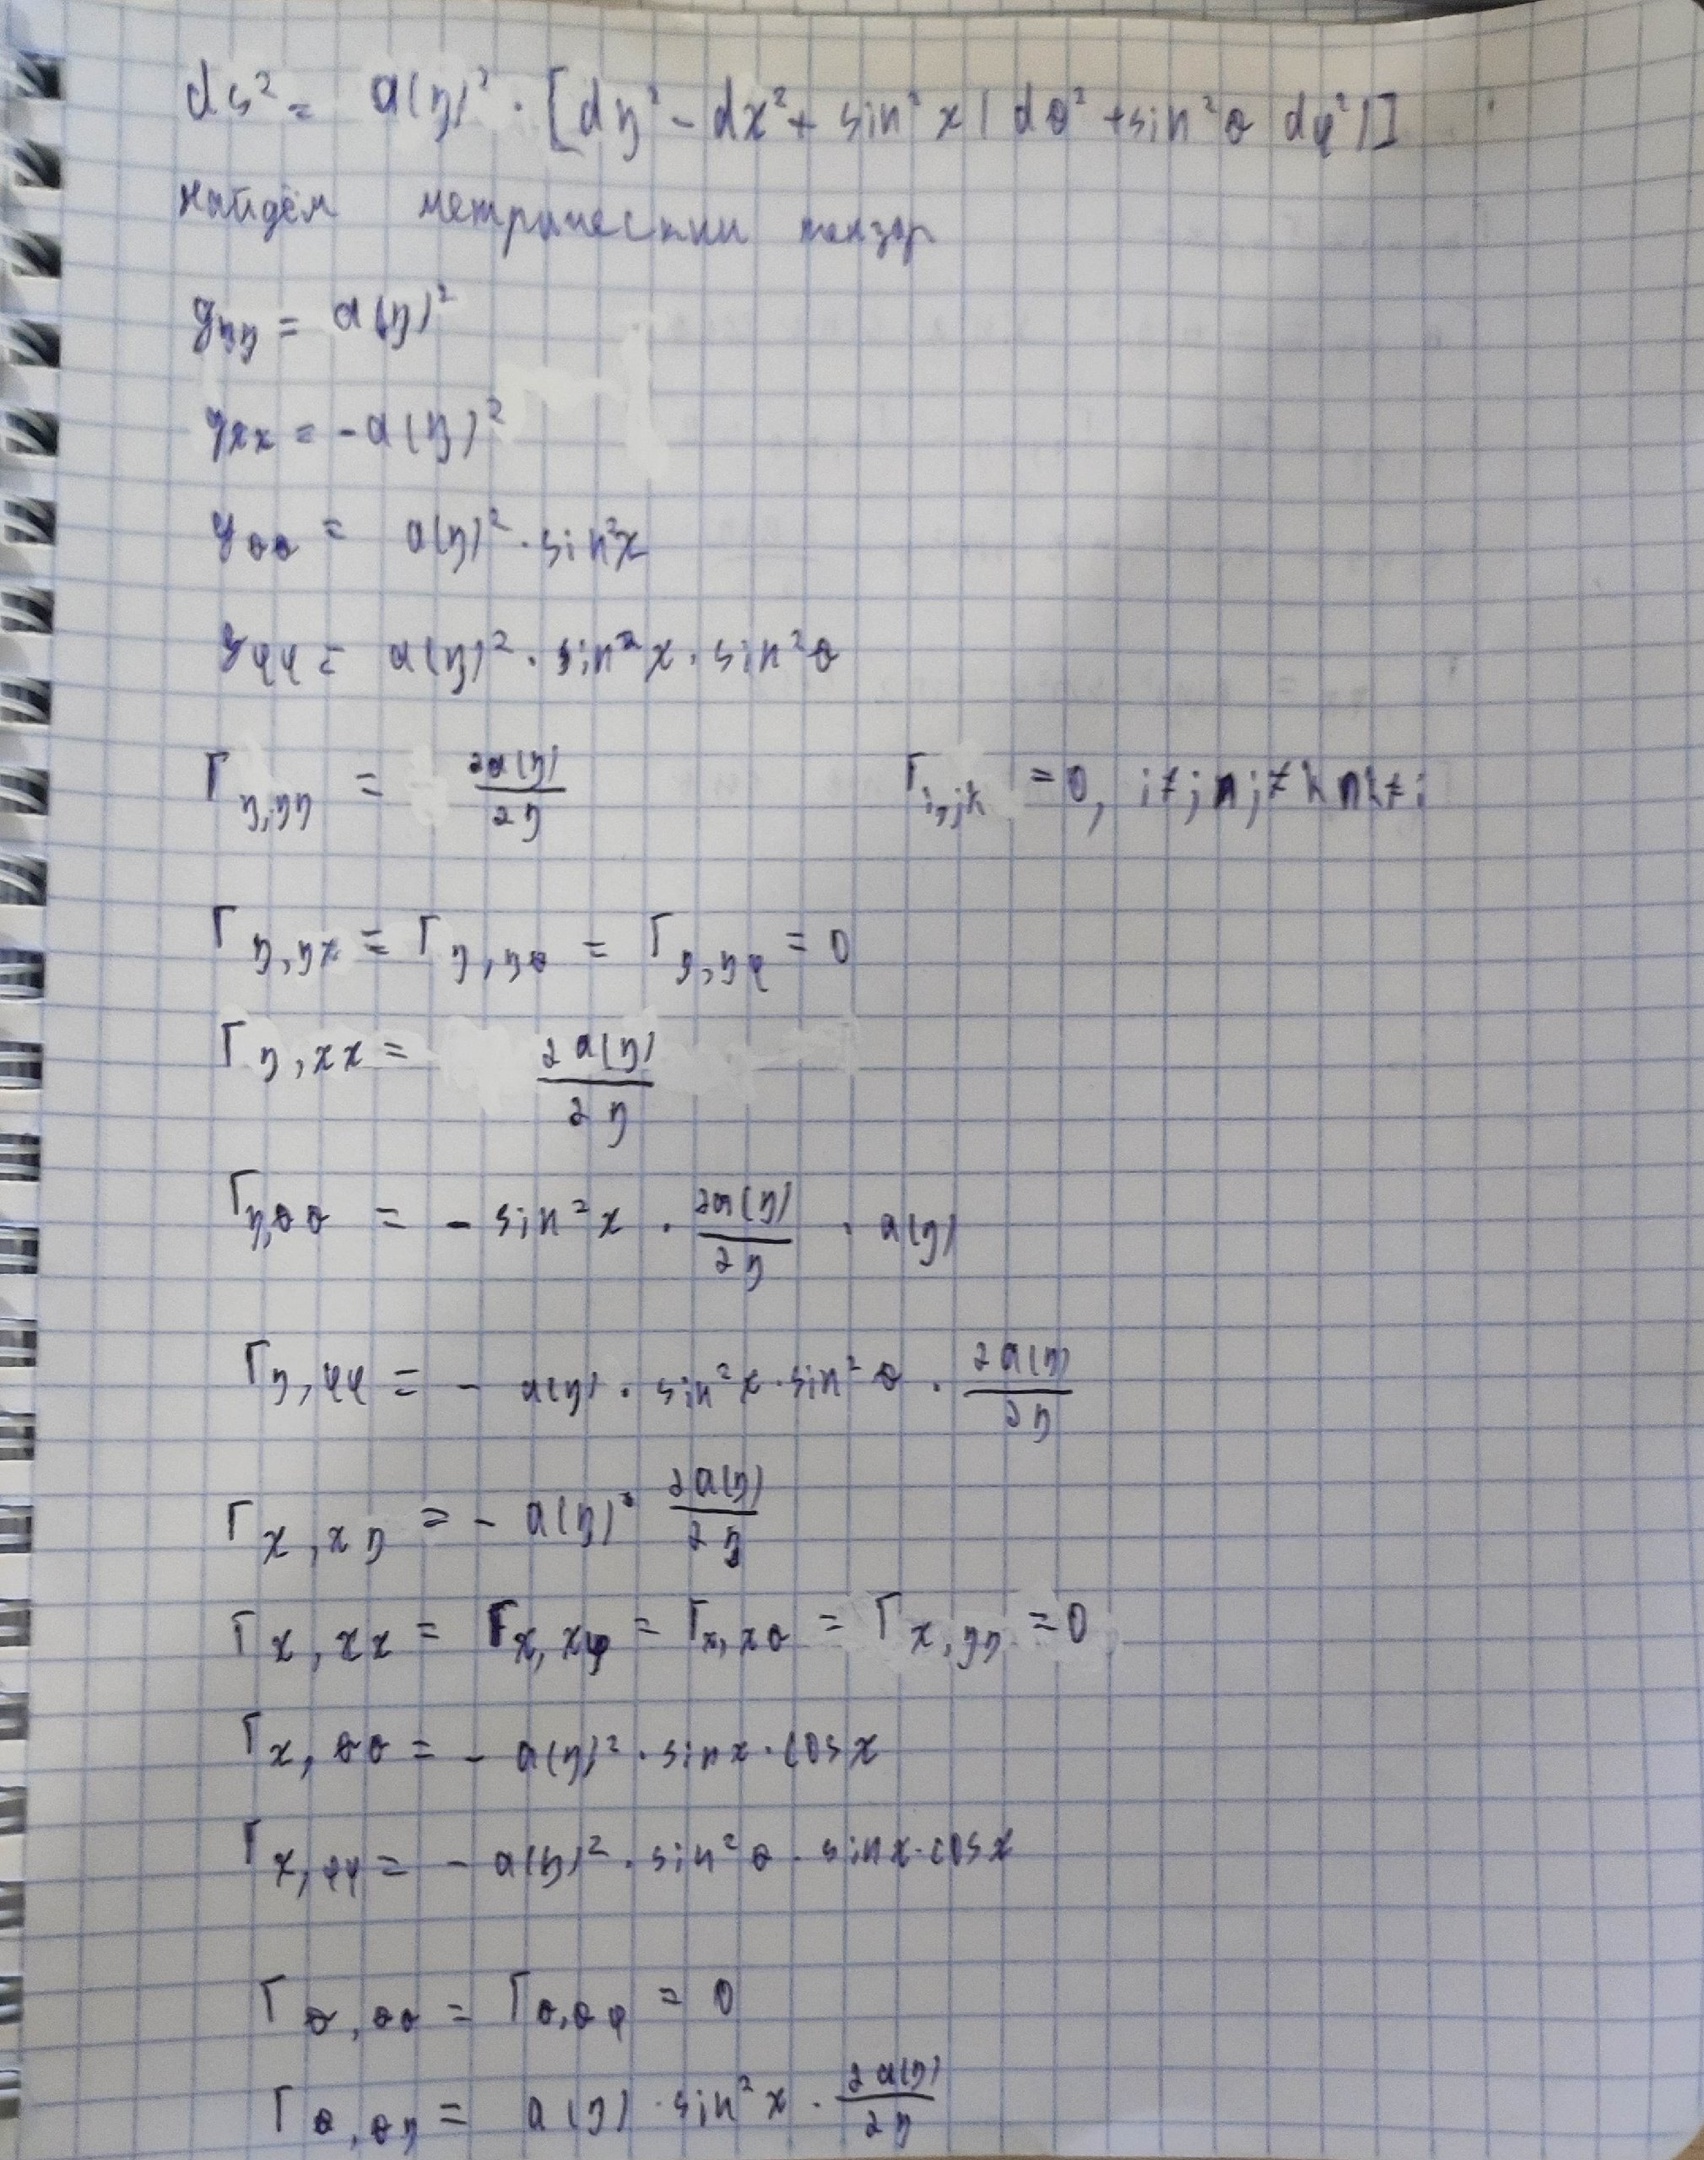 ds² = a(η)² · [dη² - dx² + sin²x (dθ² + sin²θ dφ²)]
найдём метрически тензор
g_ηη = a(η)²
g_xx = -a(η)²
g_θθ = a(η)² · sin²x
g_φφ = a(η)² · sin²x · sin²θ
Γ_η,ηη = ∂a(η)/∂η     Γ_i,jk = 0, i≠j ∩ j≠k ∩ k≠i
Γ_η,ηx = Γ_η,ηθ = Γ_η,ηφ = 0
Γ_η,xx = ∂a(η)/∂η
Γ_η,θθ = - sin²x · ∂a(η)/∂η · a(η)
Γ_η,φφ = - a(η) · sin²x · sin²θ · ∂a(η)/∂η
Γ_x,xη = - a(η) · ∂a(η)/∂η
Γ_x,xx = Γ_x,xφ = Γ_x,xθ = Γ_x,ηη = 0
Γ_x,θθ = - a(η)² · sinx · cosx
Γ_x,φφ = - a(η)² · sin²θ · sinx · cosx
Γ_θ,θθ = Γ_θ,θφ = 0
Γ_θ,θη = a(η) · sin²x · ∂a(η)/∂η